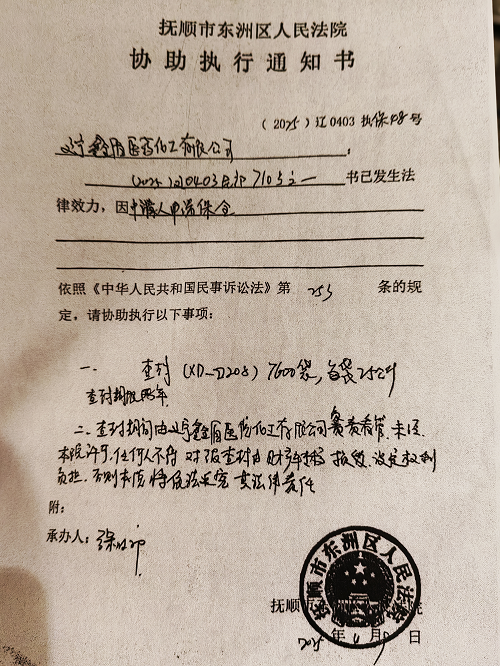 抚顺市东洲区人民法院
协助执行通知书
（2025）辽0403 执保48号
辽宁鑫盾医药化工有限公司：
(2025)辽0403民初710号之一 书已发生法
律效力，因申请人申请保全
依照《中华人民共和国民事诉讼法》第 253 条的规
定，请协助执行以下事项：
一. 查封（XD-D208）7600袋，每袋25公斤
查封期限两年.
二. 查封期间由辽宁鑫盾医药化工有限公司负责看管. 未经
本院许可，任何人不得对被查封的财产转移 损毁. 设定权利
负担. 否则本院将依法追究其法律责任
附：
承办人：
抚顺市东洲区人民法院
2025年 月 日
抚顺市东洲区人民法院